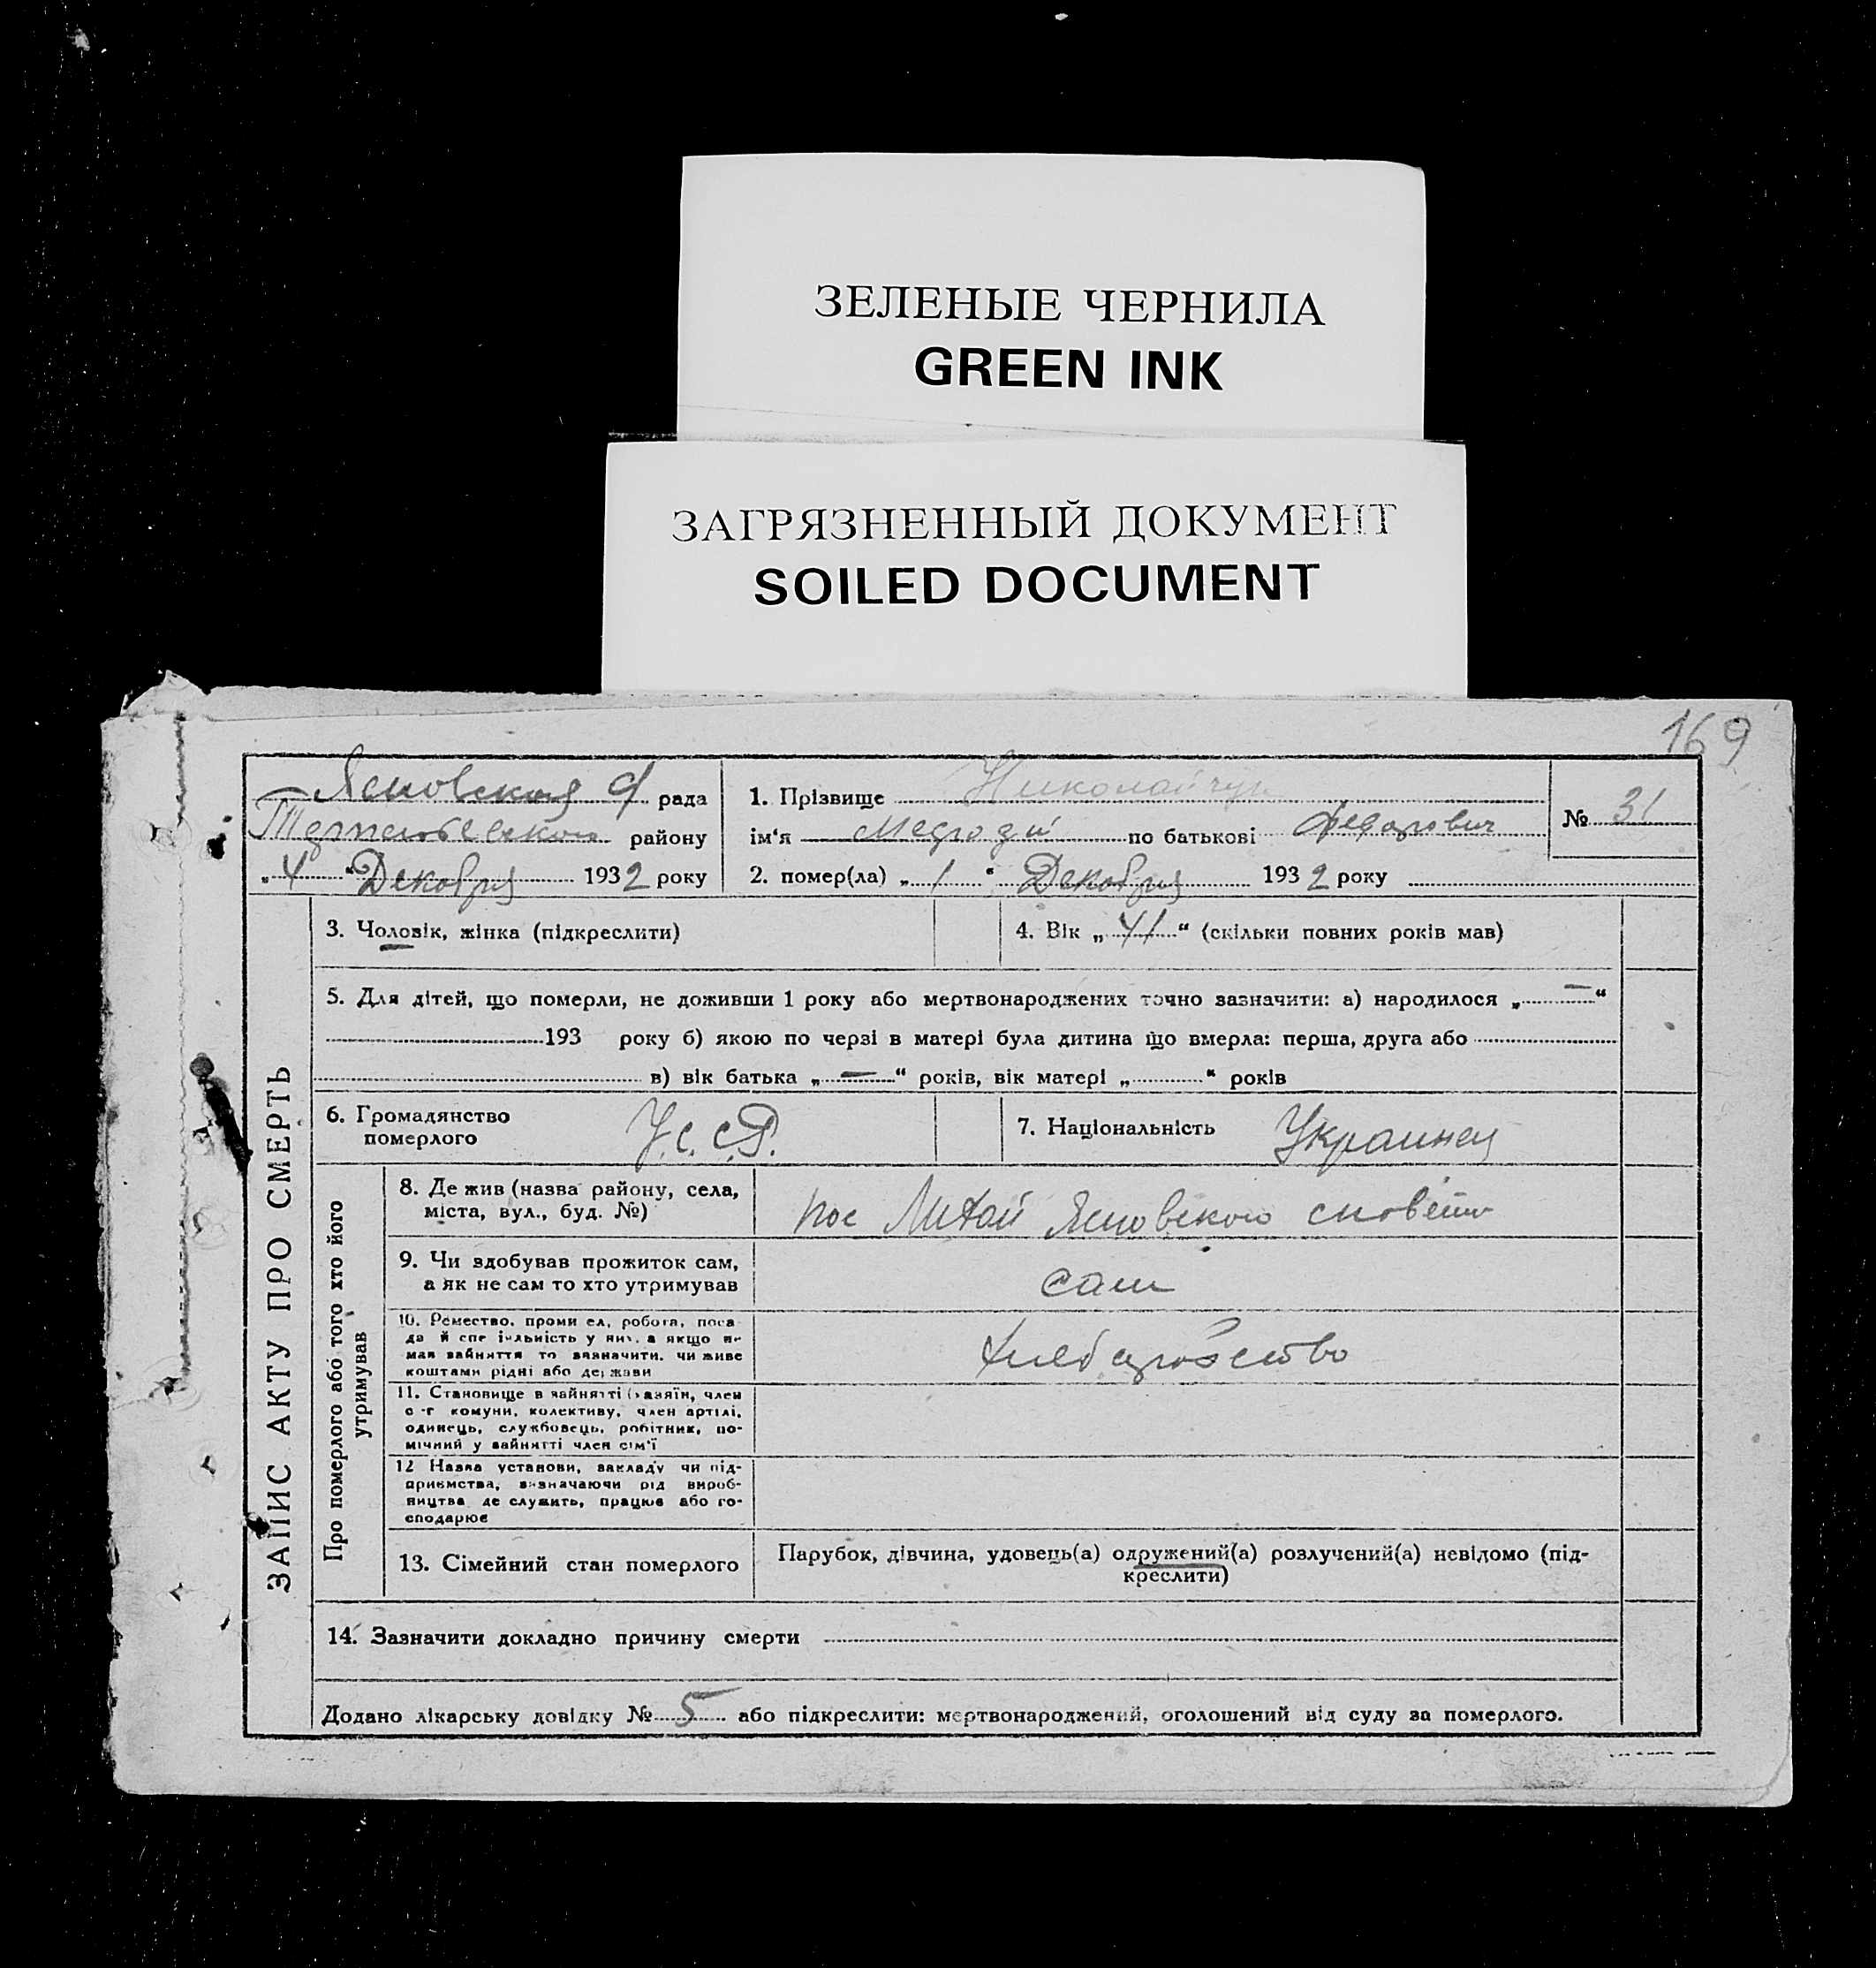 ЗЕЛЕНЫЕ ЧЕРНИЛА
GREEN INK
ЗАГРЯЗНЕННЫЙ ДОКУМЕНТ
SOILED DOCUMENT
169
рада
району
„4“ Декобря 1932 року
1. Прізвище Николайчук
ім'я по батькові Федорович
№ 31
2. помер(ла) „1“ Декобря 1932 року
ЗАПИС АКТУ ПРО СМЕРТЬ
3. Чоловік, жінка (підкреслити)
4. Вік „41“ (скільки повних років мав)
5. Для дітей, що померли, не доживши 1 року або мертвонароджених точно зазначити: а) народилося „—“
193 року б) якою по черзі в матері була дитина що вмерла: перша, друга або
в) вік батька „—“ років, вік матері „ “ років
6. Громадянство
померлого
У.С.С.Р.
7. Національність Украинец
Про померлого або того хто його
утримував
8. Де жив (назва району, села,
міста, вул., буд. №)
пос Ясновского
9. Чи здобував прожиток сам,
а як не сам то хто утримував
сам
10. Ремество, промисел, робота, поса-
да й спеціяльність у них, а якщо не
мав зайняття то зазначити, чи живе
коштами рідні або держави
11. Становище в зайнятті (хазяїн, член
с-г комуни, колективу, член артілі,
одинець, службовець, робітник, по-
мічний у зайнятті член сім'ї
12 Назва установи, закладу чи під-
приємства, визначаючи рід вироб-
ництва де служить, працює або го-
сподарює
13. Сімейний стан померлого
Парубок, дівчина, удовець(а) одружений(а) розлучений(а) невідомо (під-
креслити)
14. Зазначити докладно причину смерти
Додано лікарську довідку № 5 або підкреслити: мертвонароджений, оголошений від суду за померлого.